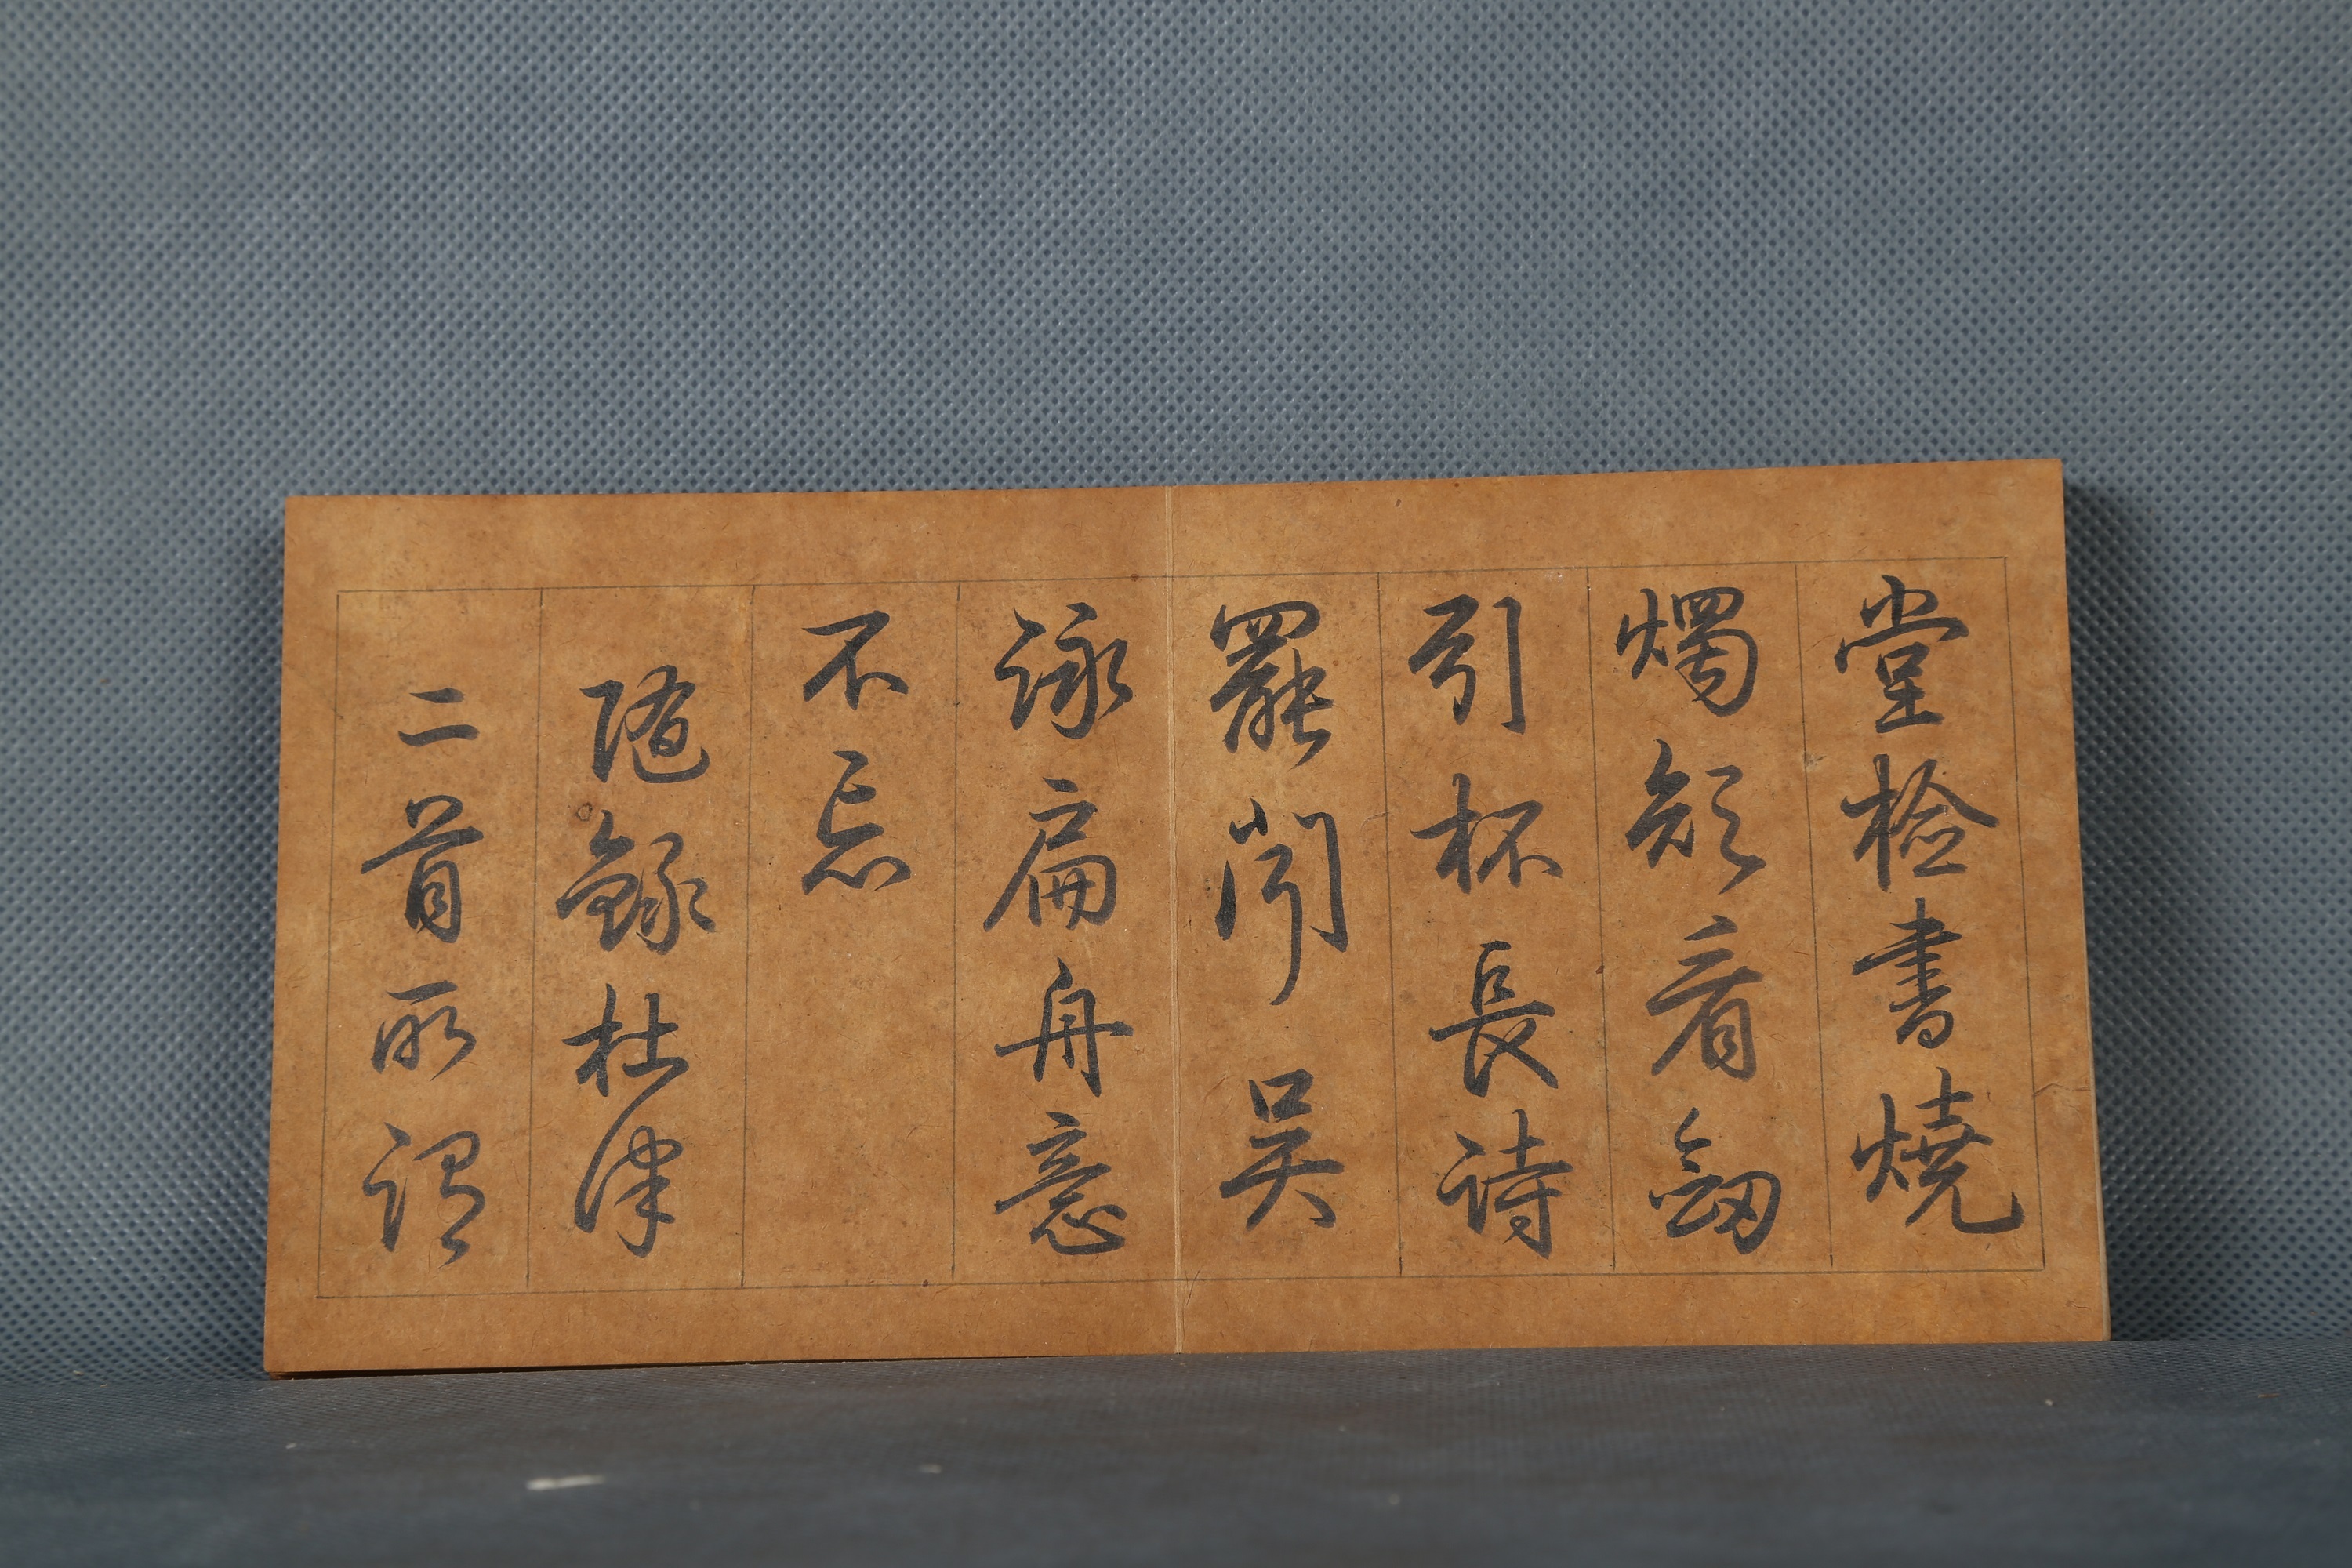 堂檢書燒
燭短看劒
引杯長詩
罷聞吴
詠扁舟意
不忘
隨錄杜律
二首所謂